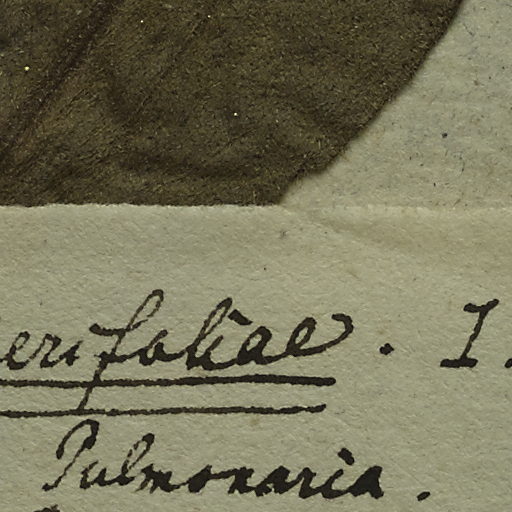 erifoliae. I.
Pulmonaria.